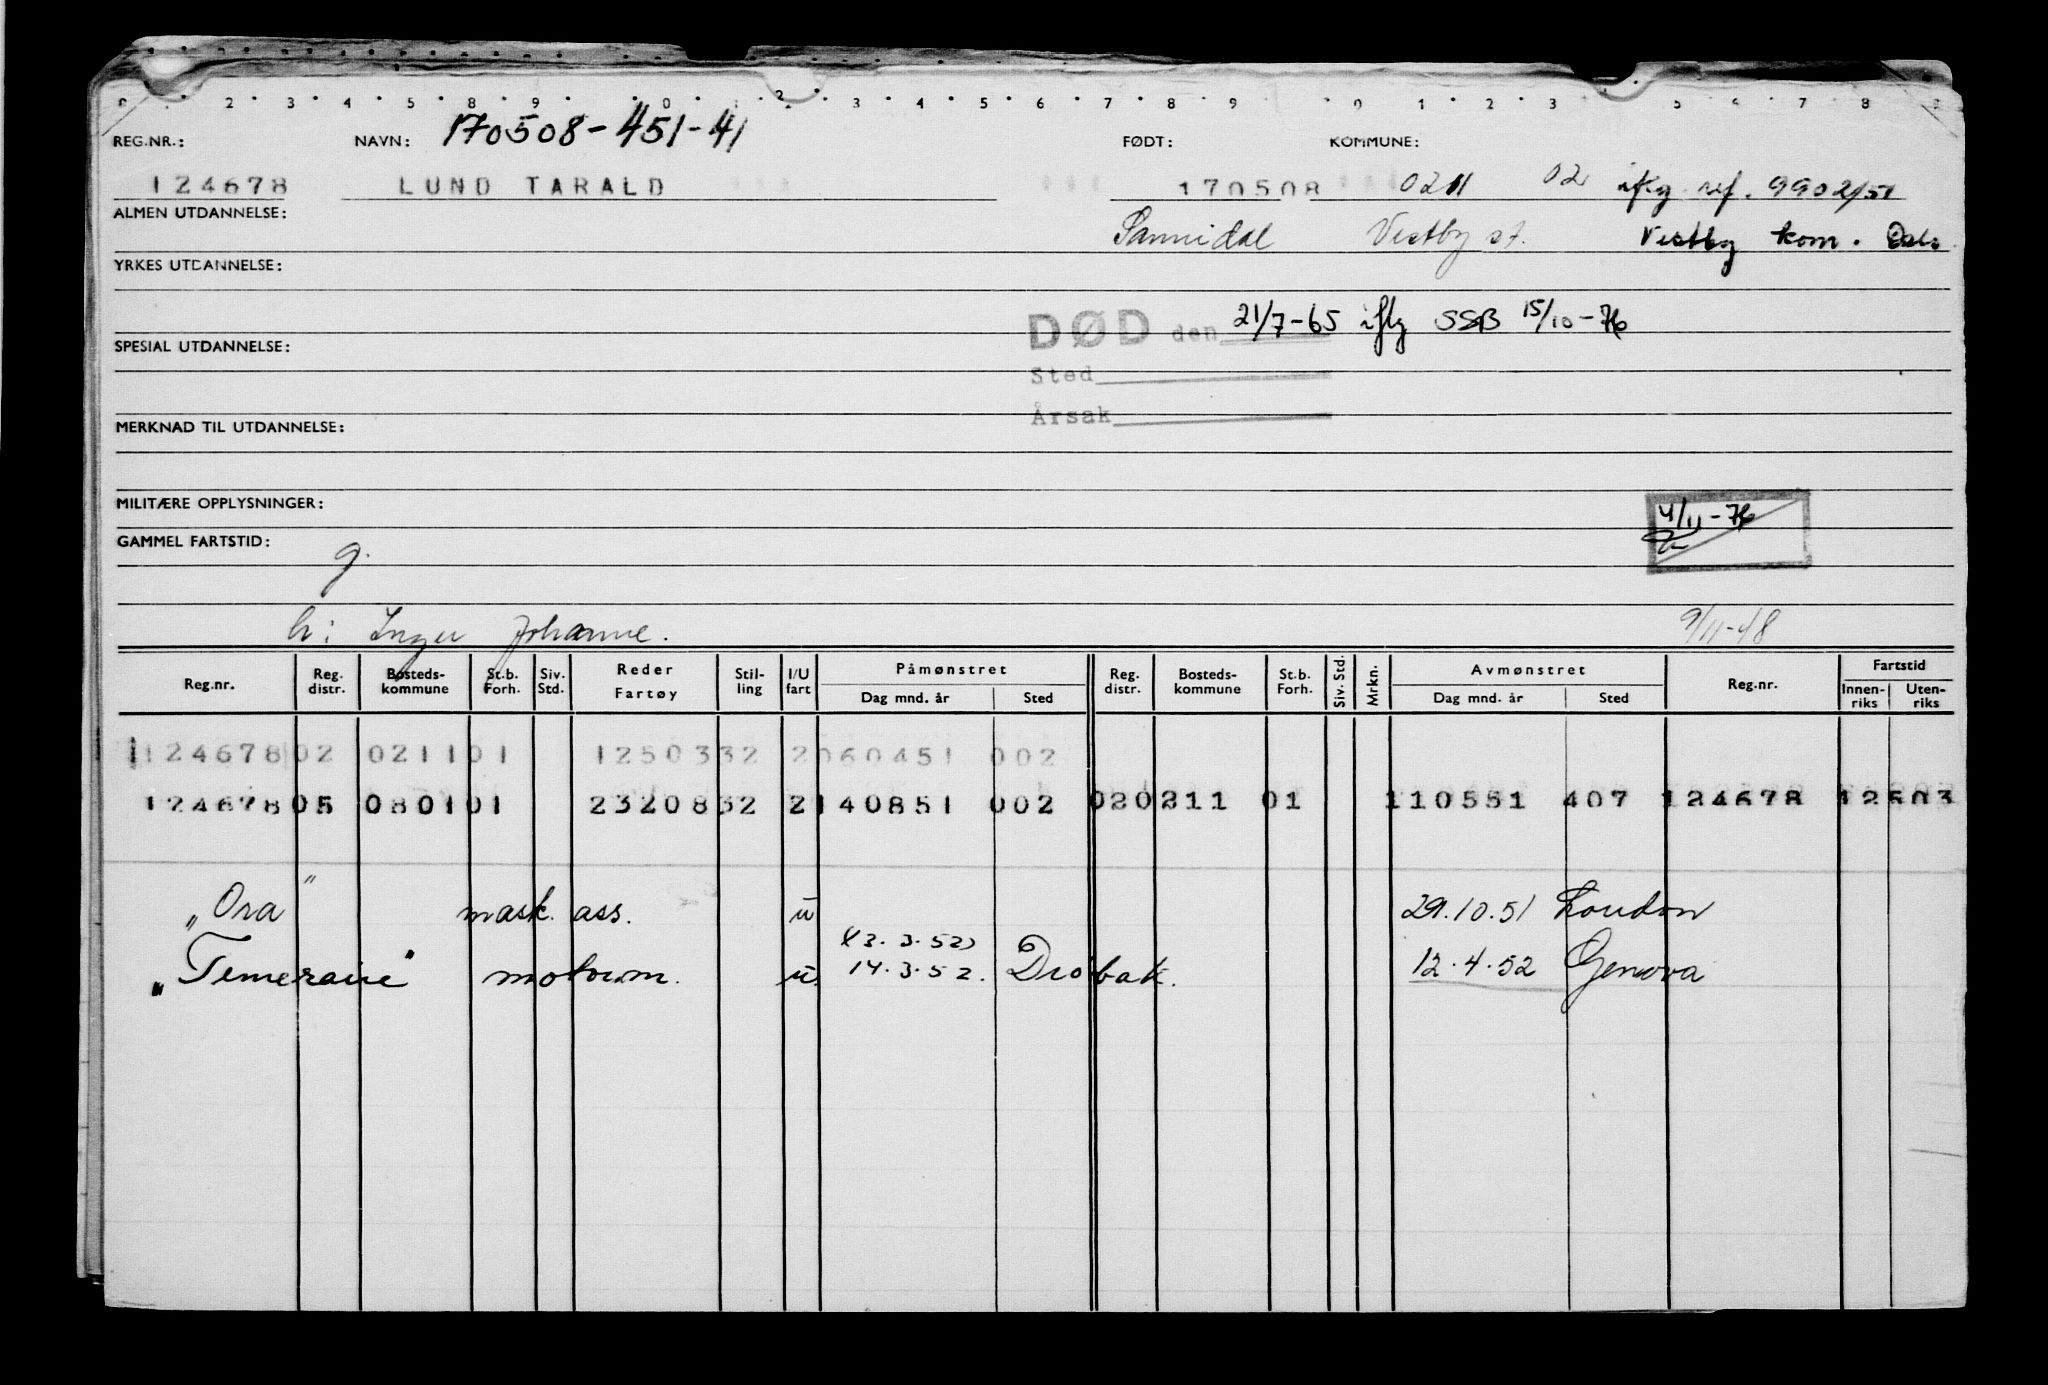 0 2 3 4 5 8 9 0 1 2 3 4 5 6 7 8 9 0 1 2 3 5 6 7 8 9
REG.NR.: NAVN: 170508-451-41 FØDT: KOMMUNE:
124678 LUND TARALD 170508 0211 02 ifkg ref. 9902/51
ALMEN UTDANNELSE: Sannidal Vestby st. Vestby kom. Oslo
YRKES UTDANNELSE:
DØD den 21/7-65 iflg SSB 15/10-76
SPESIAL UTDANNELSE:
Sted
Årsak
MERKNAD TIL UTDANNELSE:
MILITÆRE OPPLYSNINGER:
4/11-76
GAMMEL FARTSTID:
g.
h: Inger Johanne. 9/11-48
Reg.nr. Reg. distr. Bosteds-kommune St.b. Forh. Siv. Std. Reder Fartøy Stil-ling I/U fart Påmønstret Dag mnd. år Sted Reg. distr. Bosteds-kommune St.b. Forh. Siv. Std. Mrkn. Avmønstret Dag mnd. år Sted Reg.nr. Fartstid Innen-riks Uten-riks
124678 02 0211 01 1250332 2060451 002
124678 05 0801 01 2320832 2140851 002 020211 01 110551 407 124678 12503
„Ora" mask. ass. u 29.10.51 London
(13.3.52)
„Temeraire" motorm. u. 14.3.52. Drøbak. 12.4.52 Genova